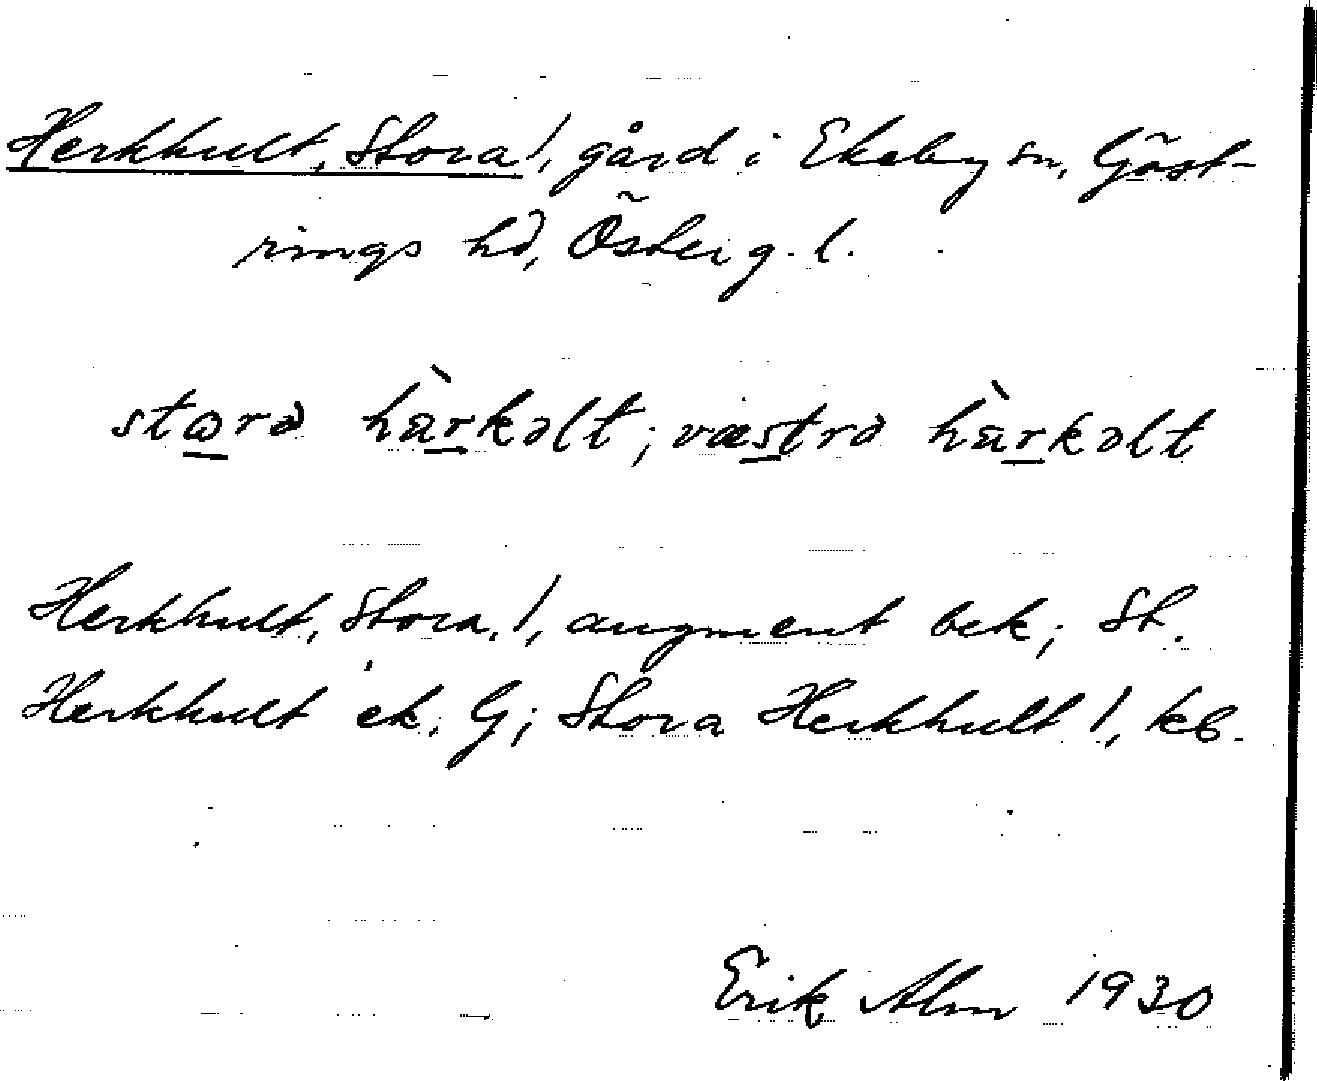 Herkhult, Stora !, gård i Ekeby sn, Göst-
rings hd, Österg. l.
storə hàrkəlt; væstrə hàrkəlt
Herkhult, Stora, !, augment bek; St.
Herkhult ek. G; Stora Herkhult !, kb.
Erik Alm 1930